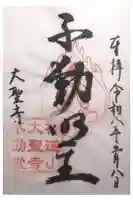 奉拝 令和八年二月八日
不動明王
大聖寺